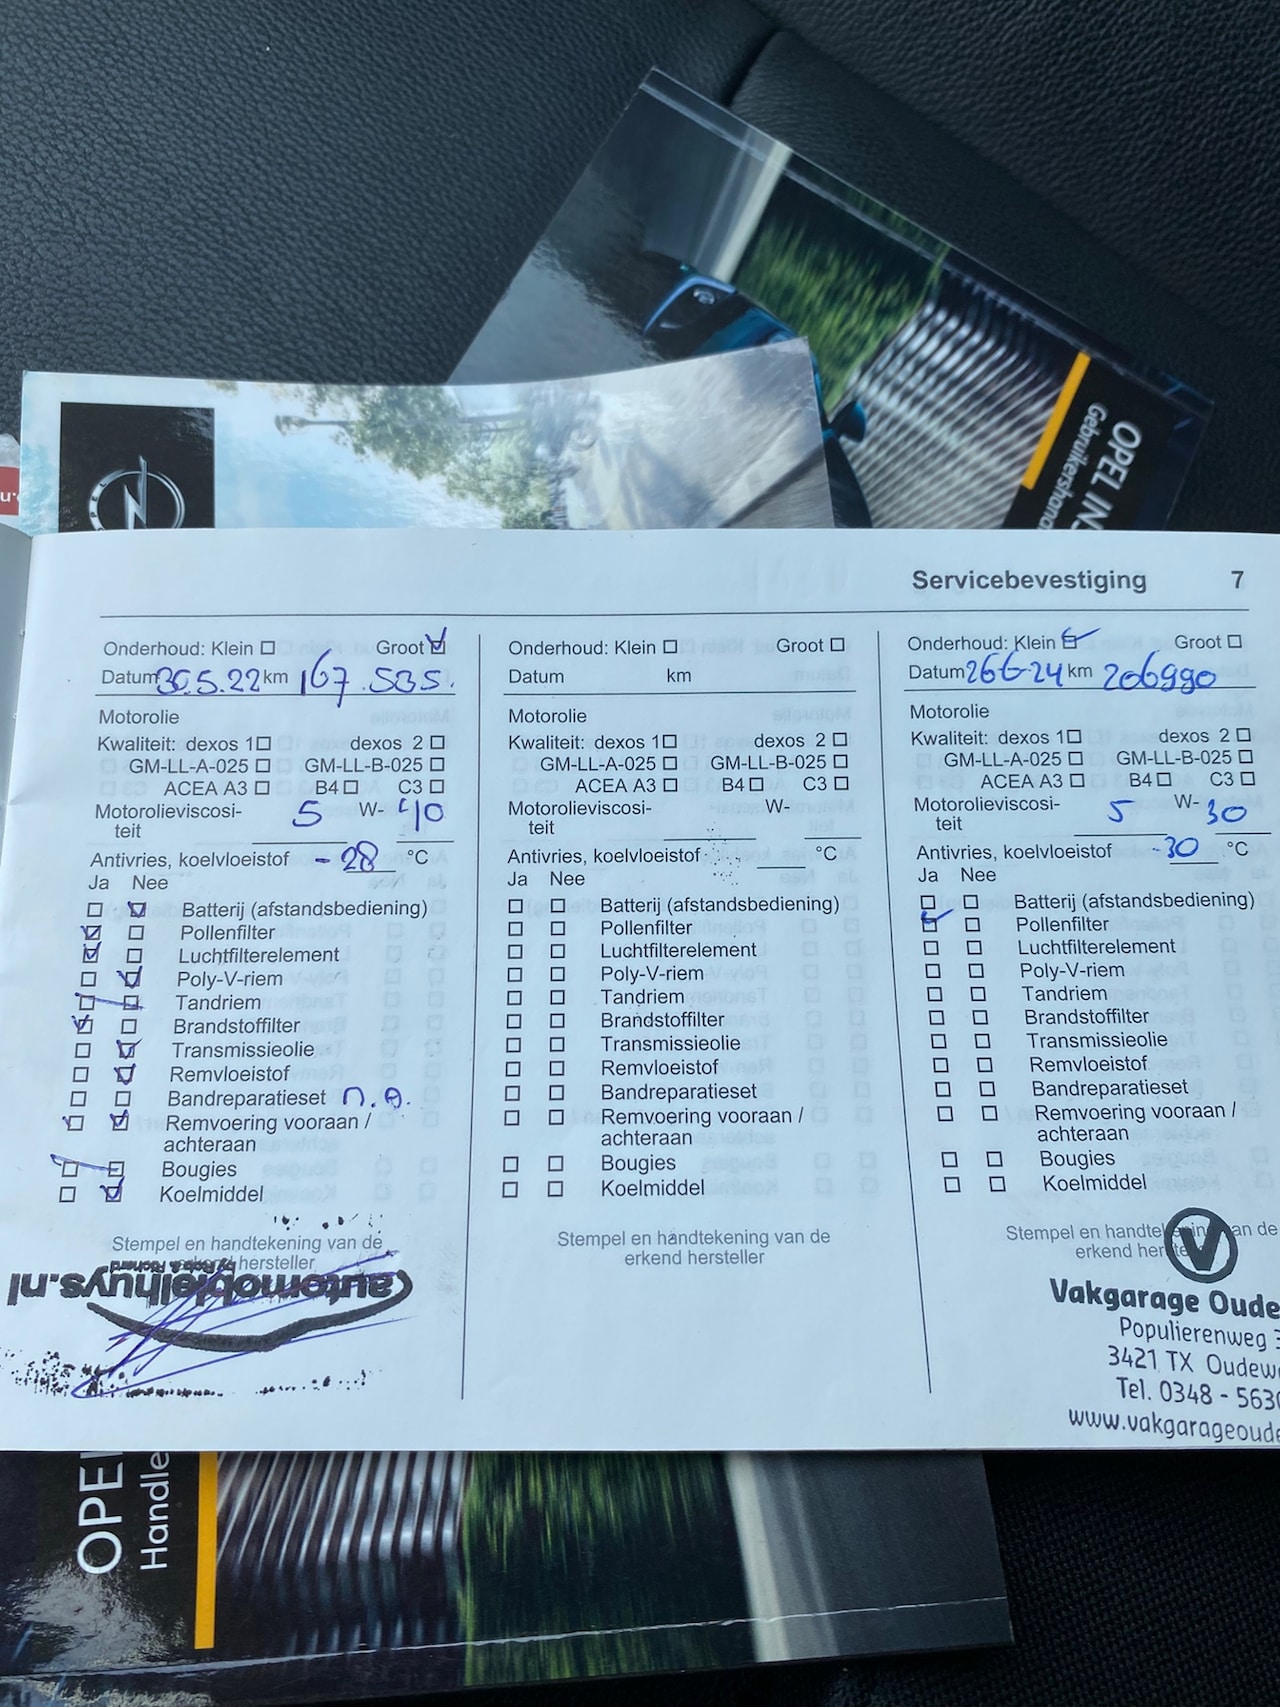 OPEL INS
Gebruikershand
OPEL
Servicebevestiging 7
Onderhoud: Klein Groot
Datum 30.5.22 km 167.535.
Motorolie
Kwaliteit: dexos 1 dexos 2
GM-LL-A-025 GM-LL-B-025
ACEA A3 B4 C3
Motorolieviscosi-
teit 5 W- 40
Antivries, koelvloeistof -28 °C
Ja Nee
Batterij (afstandsbediening)
Pollenfilter
Luchtfilterelement
Poly-V-riem
Tandriem
Brandstoffilter
Transmissieolie
Remvloeistof
Bandreparatieset n.a.
Remvoering vooraan /
achteraan
Bougies
Koelmiddel
Stempel en handtekening van de
erkend hersteller
automobielhuys.nl
Onderhoud: Klein Groot
Datum km
Motorolie
Kwaliteit: dexos 1 dexos 2
GM-LL-A-025 GM-LL-B-025
ACEA A3 B4 C3
Motorolieviscosi-
teit W-
Antivries, koelvloeistof °C
Ja Nee
Batterij (afstandsbediening)
Pollenfilter
Luchtfilterelement
Poly-V-riem
Tandriem
Brandstoffilter
Transmissieolie
Remvloeistof
Bandreparatieset
Remvoering vooraan /
achteraan
Bougies
Koelmiddel
Stempel en handtekening van de
erkend hersteller
Onderhoud: Klein Groot
Datum 26-6-24 km 206990
Motorolie
Kwaliteit: dexos 1 dexos 2
GM-LL-A-025 GM-LL-B-025
ACEA A3 B4 C3
Motorolieviscosi-
teit 5 W- 30
Antivries, koelvloeistof -30 °C
Ja Nee
Batterij (afstandsbediening)
Pollenfilter
Luchtfilterelement
Poly-V-riem
Tandriem
Brandstoffilter
Transmissieolie
Remvloeistof
Bandreparatieset
Remvoering vooraan /
achteraan
Bougies
Koelmiddel
Stempel en handtekening van de
erkend hersteller
Vakgarage Oude
Populierenweg 3
3421 TX Oudew
Tel. 0348 - 563
www.vakgarageoude
OPEL
Handle